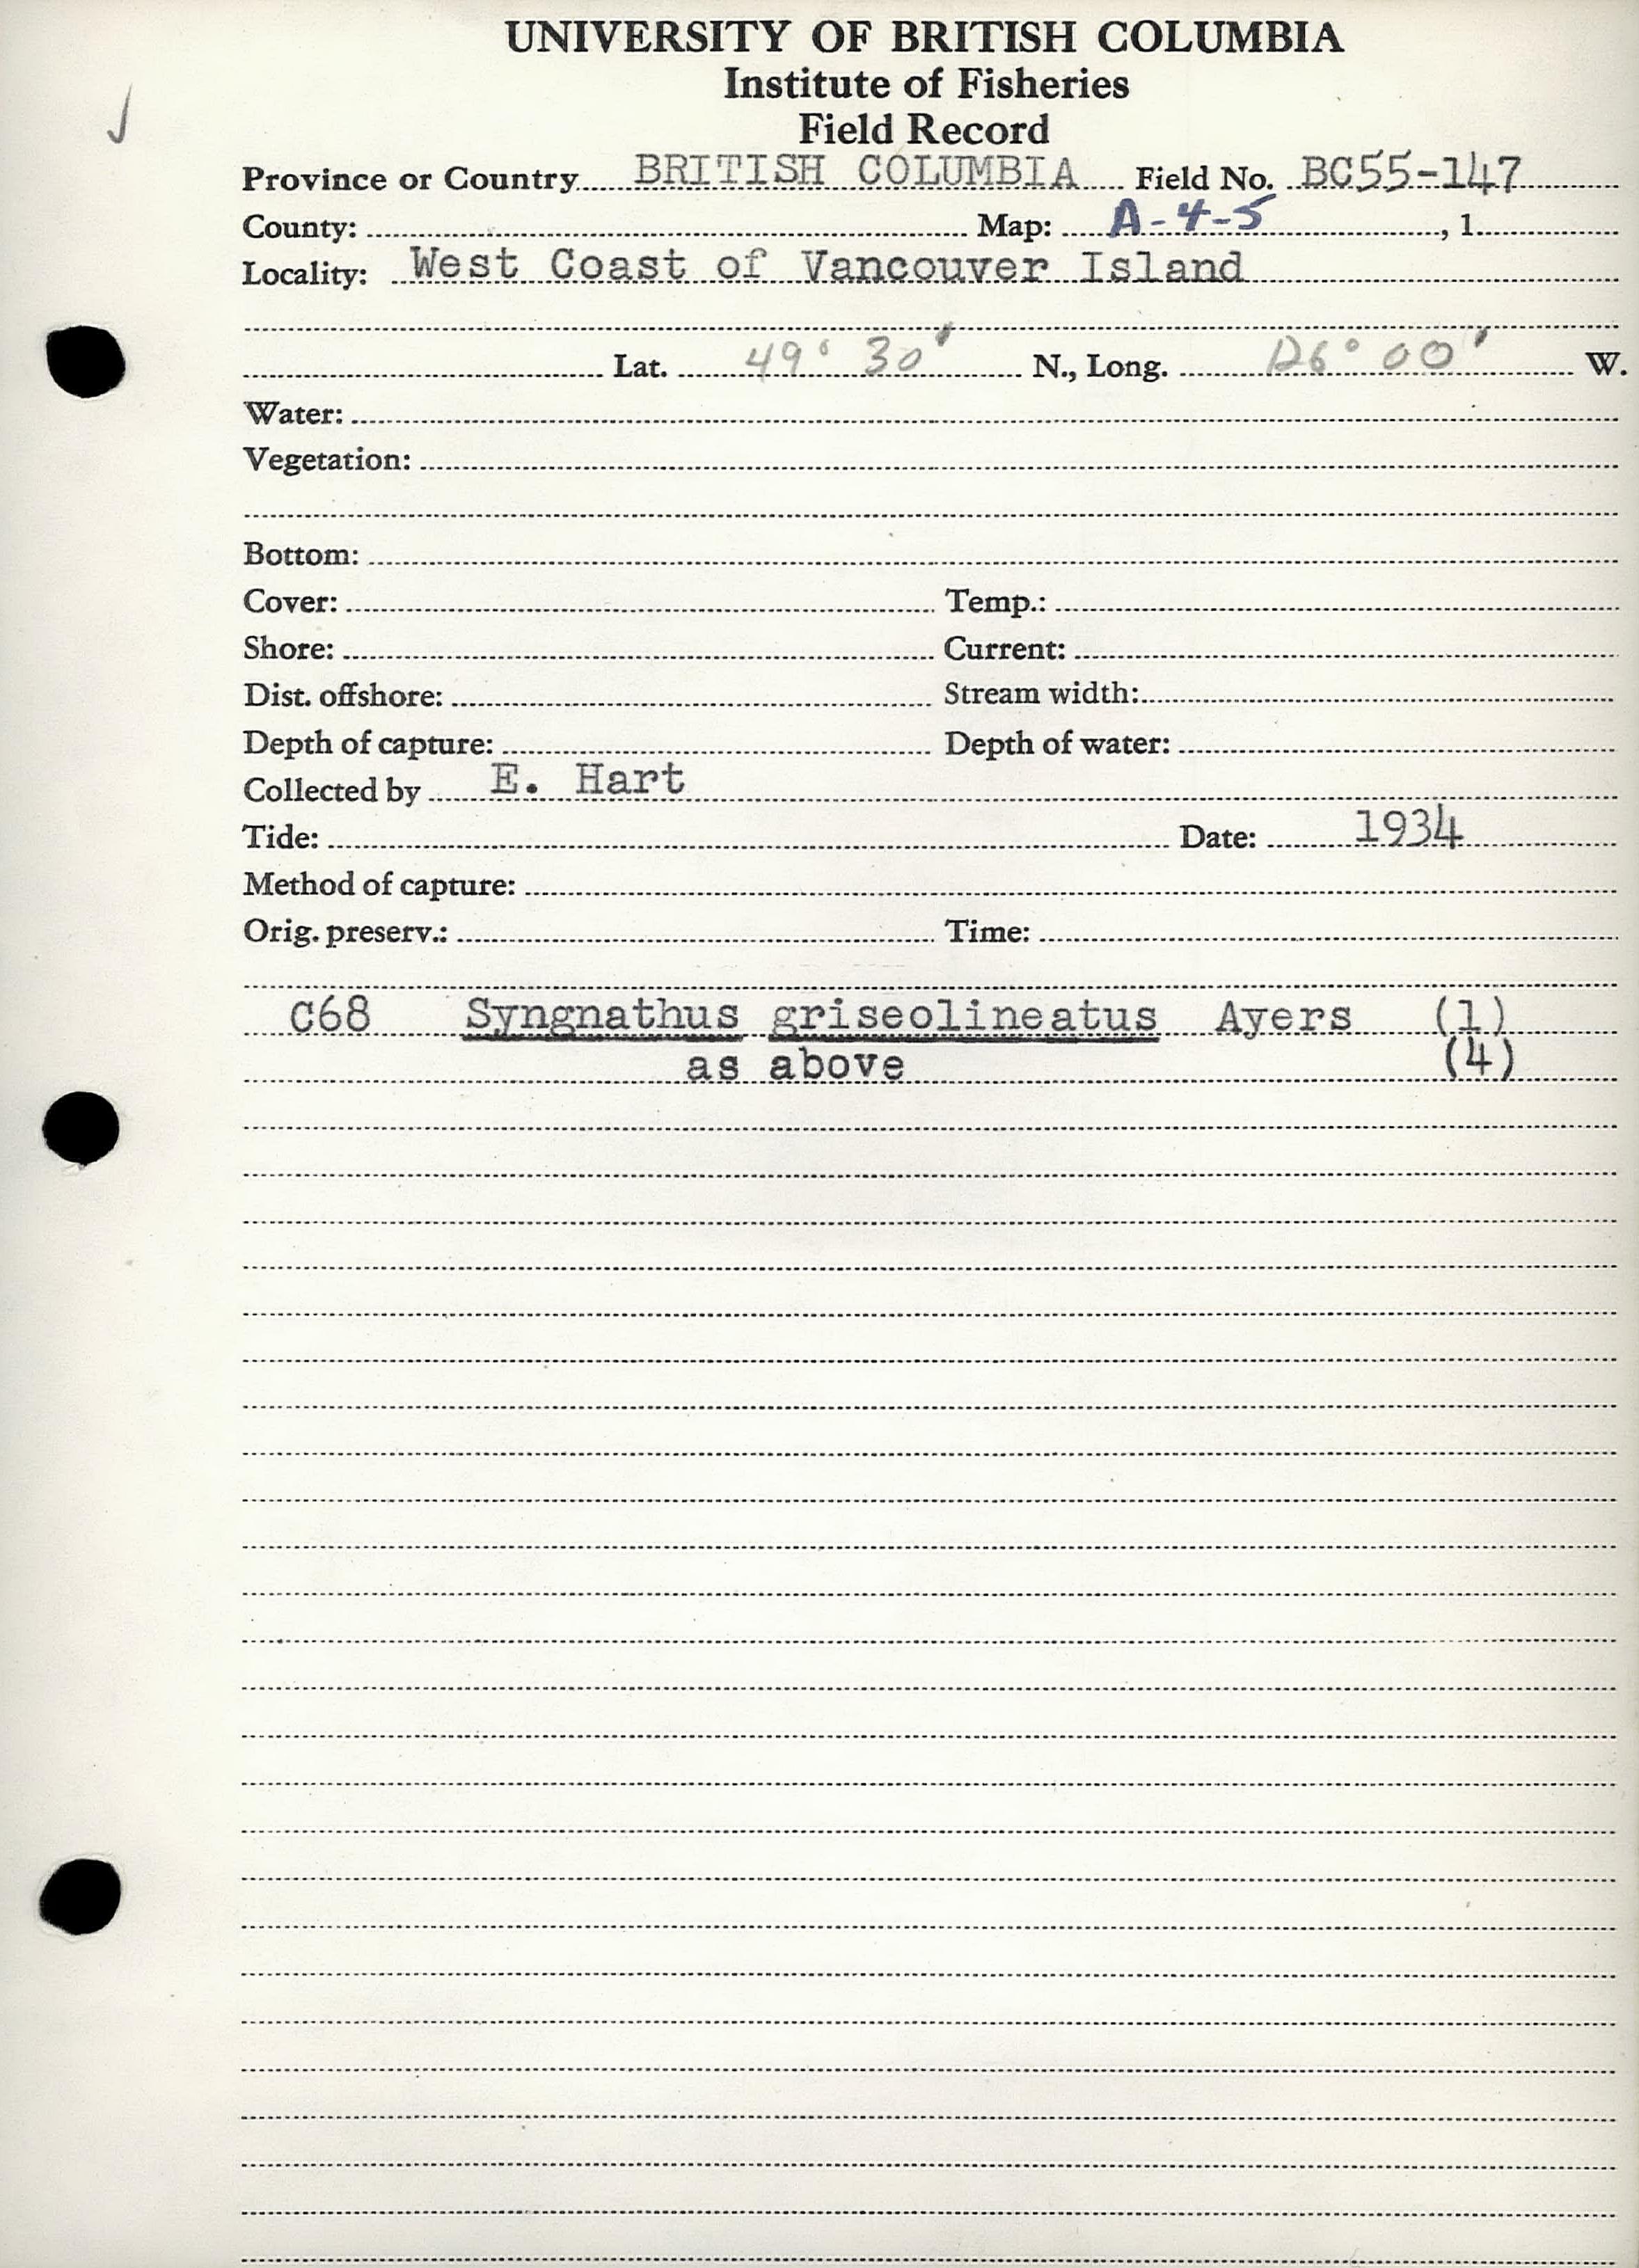 UNIVERSITY OF BRITISH COLUMBIA
Institute of Fisheries
Field Record
Province or Country BRITISH COLUMBIA Field No. BC55-147
County: Map: A-4-5 , 1
Locality: West Coast of Vancouver Island
Lat. 49° 30' N., Long. 126° 00' W.
Water:
Vegetation:
Bottom:
Cover: Temp.:
Shore: Current:
Dist. offshore: Stream width:
Depth of capture: Depth of water:
Collected by E. Hart
Tide: Date: 1934
Method of capture:
Orig. preserv.: Time:
C68 Syngnathus griseolineatus Ayers (1)
as above (4)